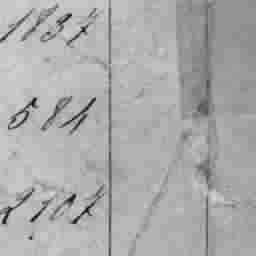 1837
581
2107